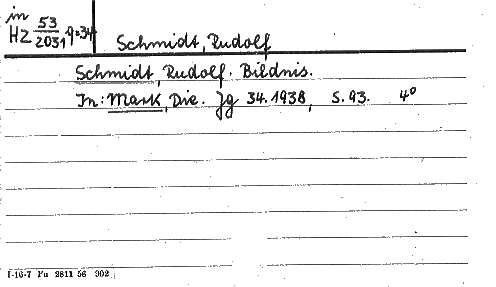 in
HZ 53/2031 9=34
Schmidt, Rudolf
Schmidt, Rudolf. Bildnis.
In: Mark, Die. Jg 34.1938, S. 93. 4°
I-16-7 Fu 2811 56 902